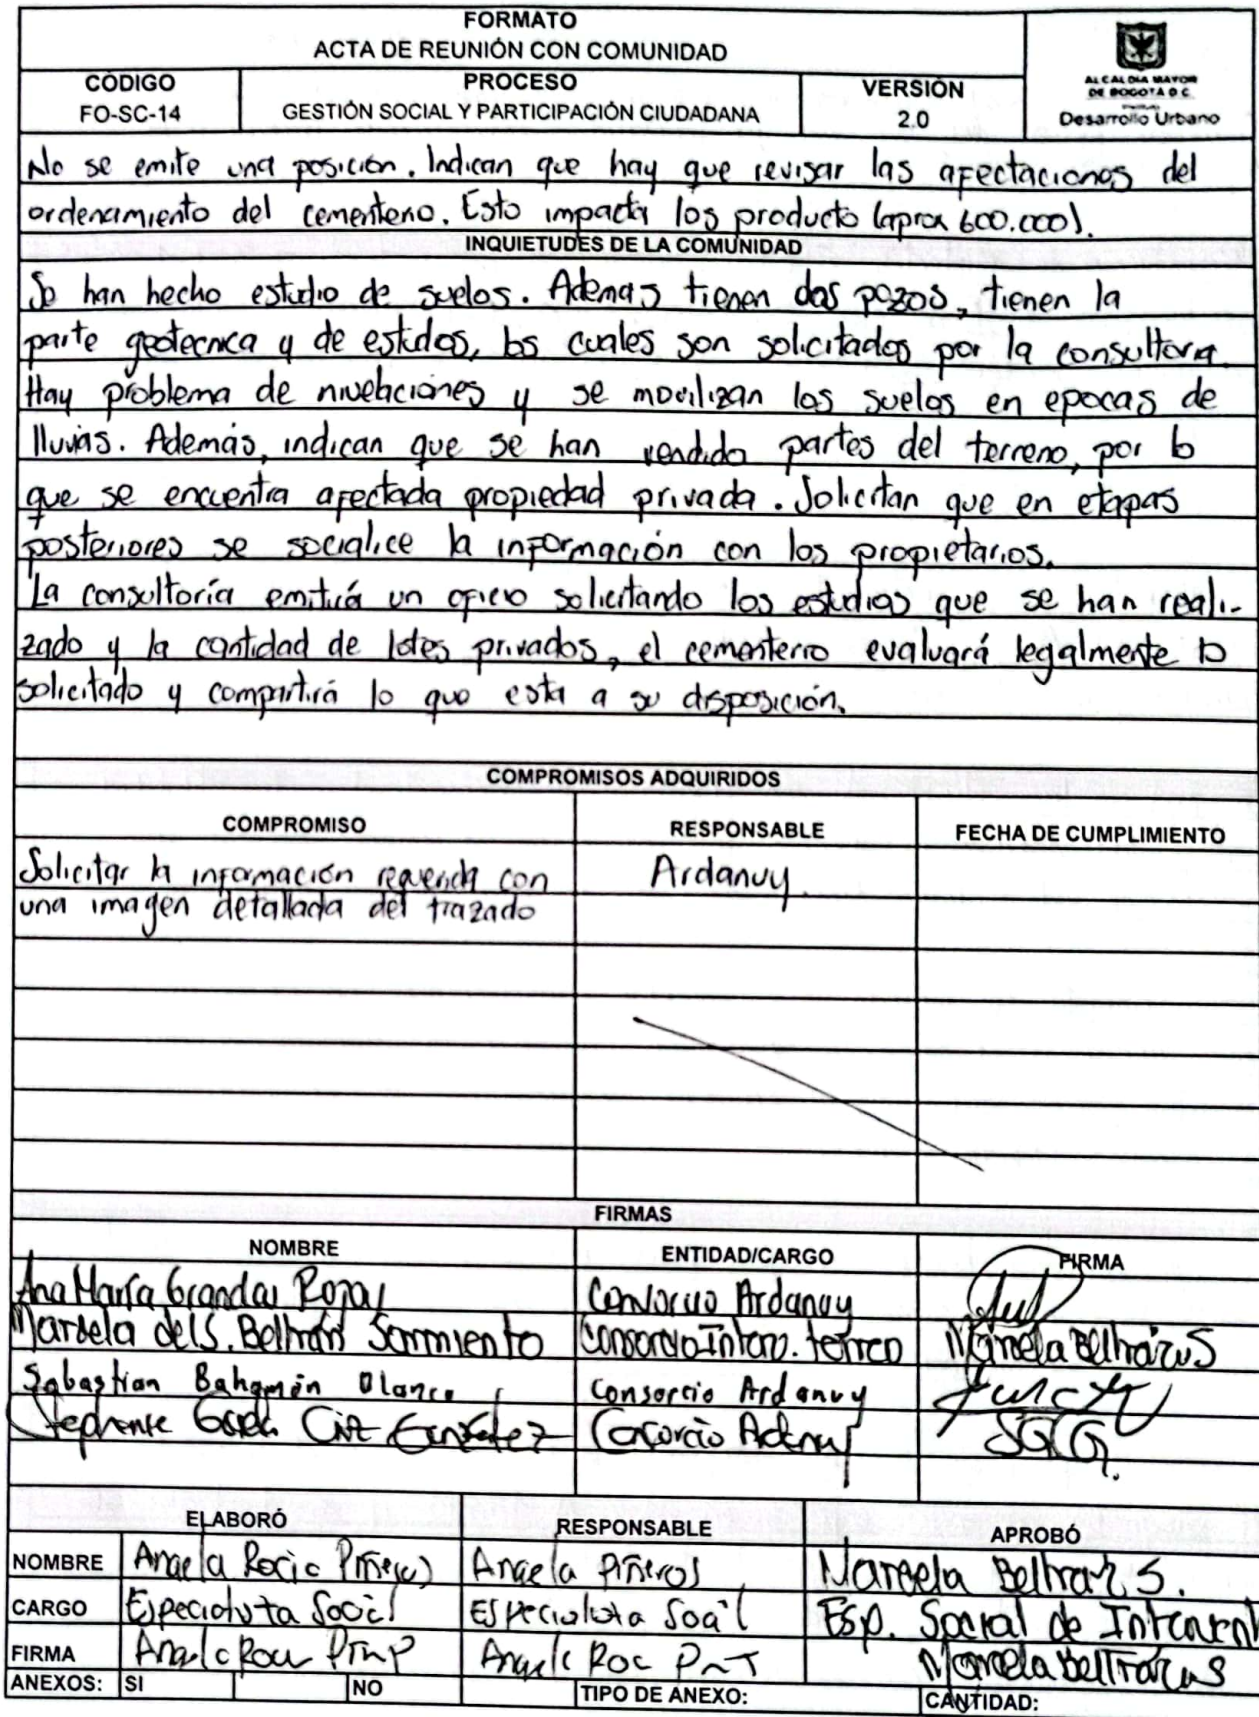 FORMATO
ACTA DE REUNIÓN CON COMUNIDAD
CÓDIGO
FO-SC-14
PROCESO
GESTIÓN SOCIAL Y PARTICIPACIÓN CIUDADANA
VERSIÓN
2.0
ALCALDIA MAYOR
DE BOGOTA D.C.
Desarrollo Urbano
No se emite una posición. Indican que hay que revisar las afectaciones del
ordenamiento del cementerio. Esto impacta los producto (aprox 600.000).
INQUIETUDES DE LA COMUNIDAD
Se han hecho estudio de suelos. Ademas tienen dos pozos, tienen la
parte geotecnica y de estudos, los cuales son solicitados por la consultoria.
Hay problema de nivelaciones y se movilizan los suelos en epocas de
lluvias. Además, indican que se han vendido partes del terreno, por lo
que se encuentra afectada propiedad privada. Solicitan que en etapas
posteriores se socialice la información con los propietarios.
La consultoría emitirá un oficio solicitando los estudios que se han reali-
zado y la cantidad de lotes privados, el cementerio evaluará legalmente lo
solicitado y compartirá lo que esta a su disposición.
COMPROMISOS ADQUIRIDOS
COMPROMISO
RESPONSABLE
FECHA DE CUMPLIMIENTO
Solicitar la información requerida con
una imagen detallada del trazado
Ardanuy.
FIRMAS
NOMBRE
ENTIDAD/CARGO
FIRMA
Ana María Grandas Rojas
Consorcio Ardanuy
Marcela del S. Beltrán Sarmiento
Consorcio Interv.
Marcela Beltrán S
Sabastian Bahamón Blanco
Consorcio Ardanuy
González
Consorcio Ardanuy
SGCG.
ELABORÓ
RESPONSABLE
APROBÓ
NOMBRE
Angela Rocio Piñeros
Angela Piñeros
Marcela Beltrán S.
CARGO
Especialista Social
Especialista Social
Esp. Social de Intervent
FIRMA
Marcela Beltrán S
ANEXOS:
SI
NO
TIPO DE ANEXO:
CANTIDAD: